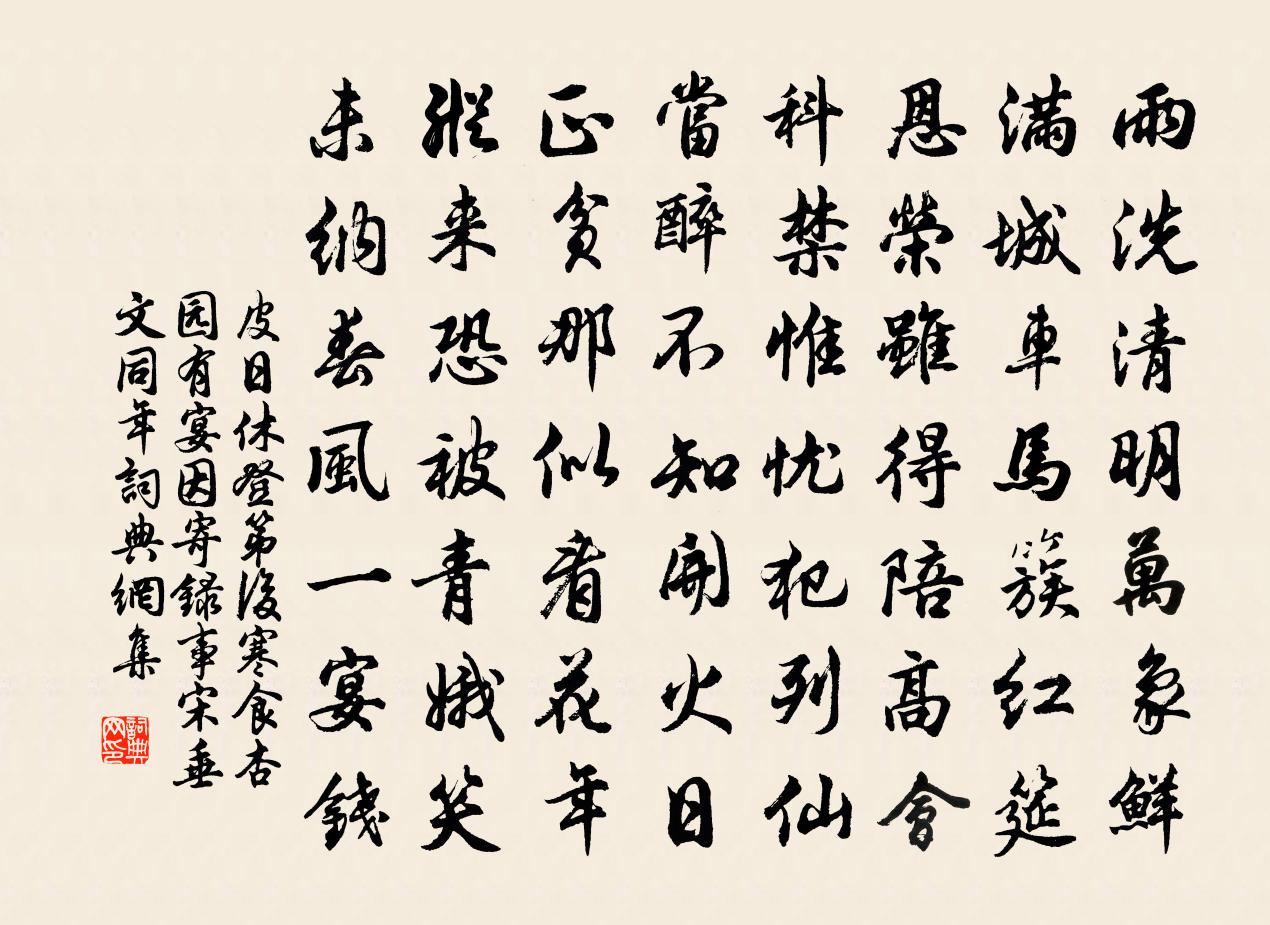 雨洗清明萬象鮮
滿城車馬簇红筵
恩榮雖得陪高會
科禁惟忧犯列仙
當醉不知開火日
正貧那似看花年
縱来恐被青娥笑
未納春風一宴錢
皮日休登第後寒食杏
园有宴因寄錄事宋垂
文同年詞典網集
詞典网印